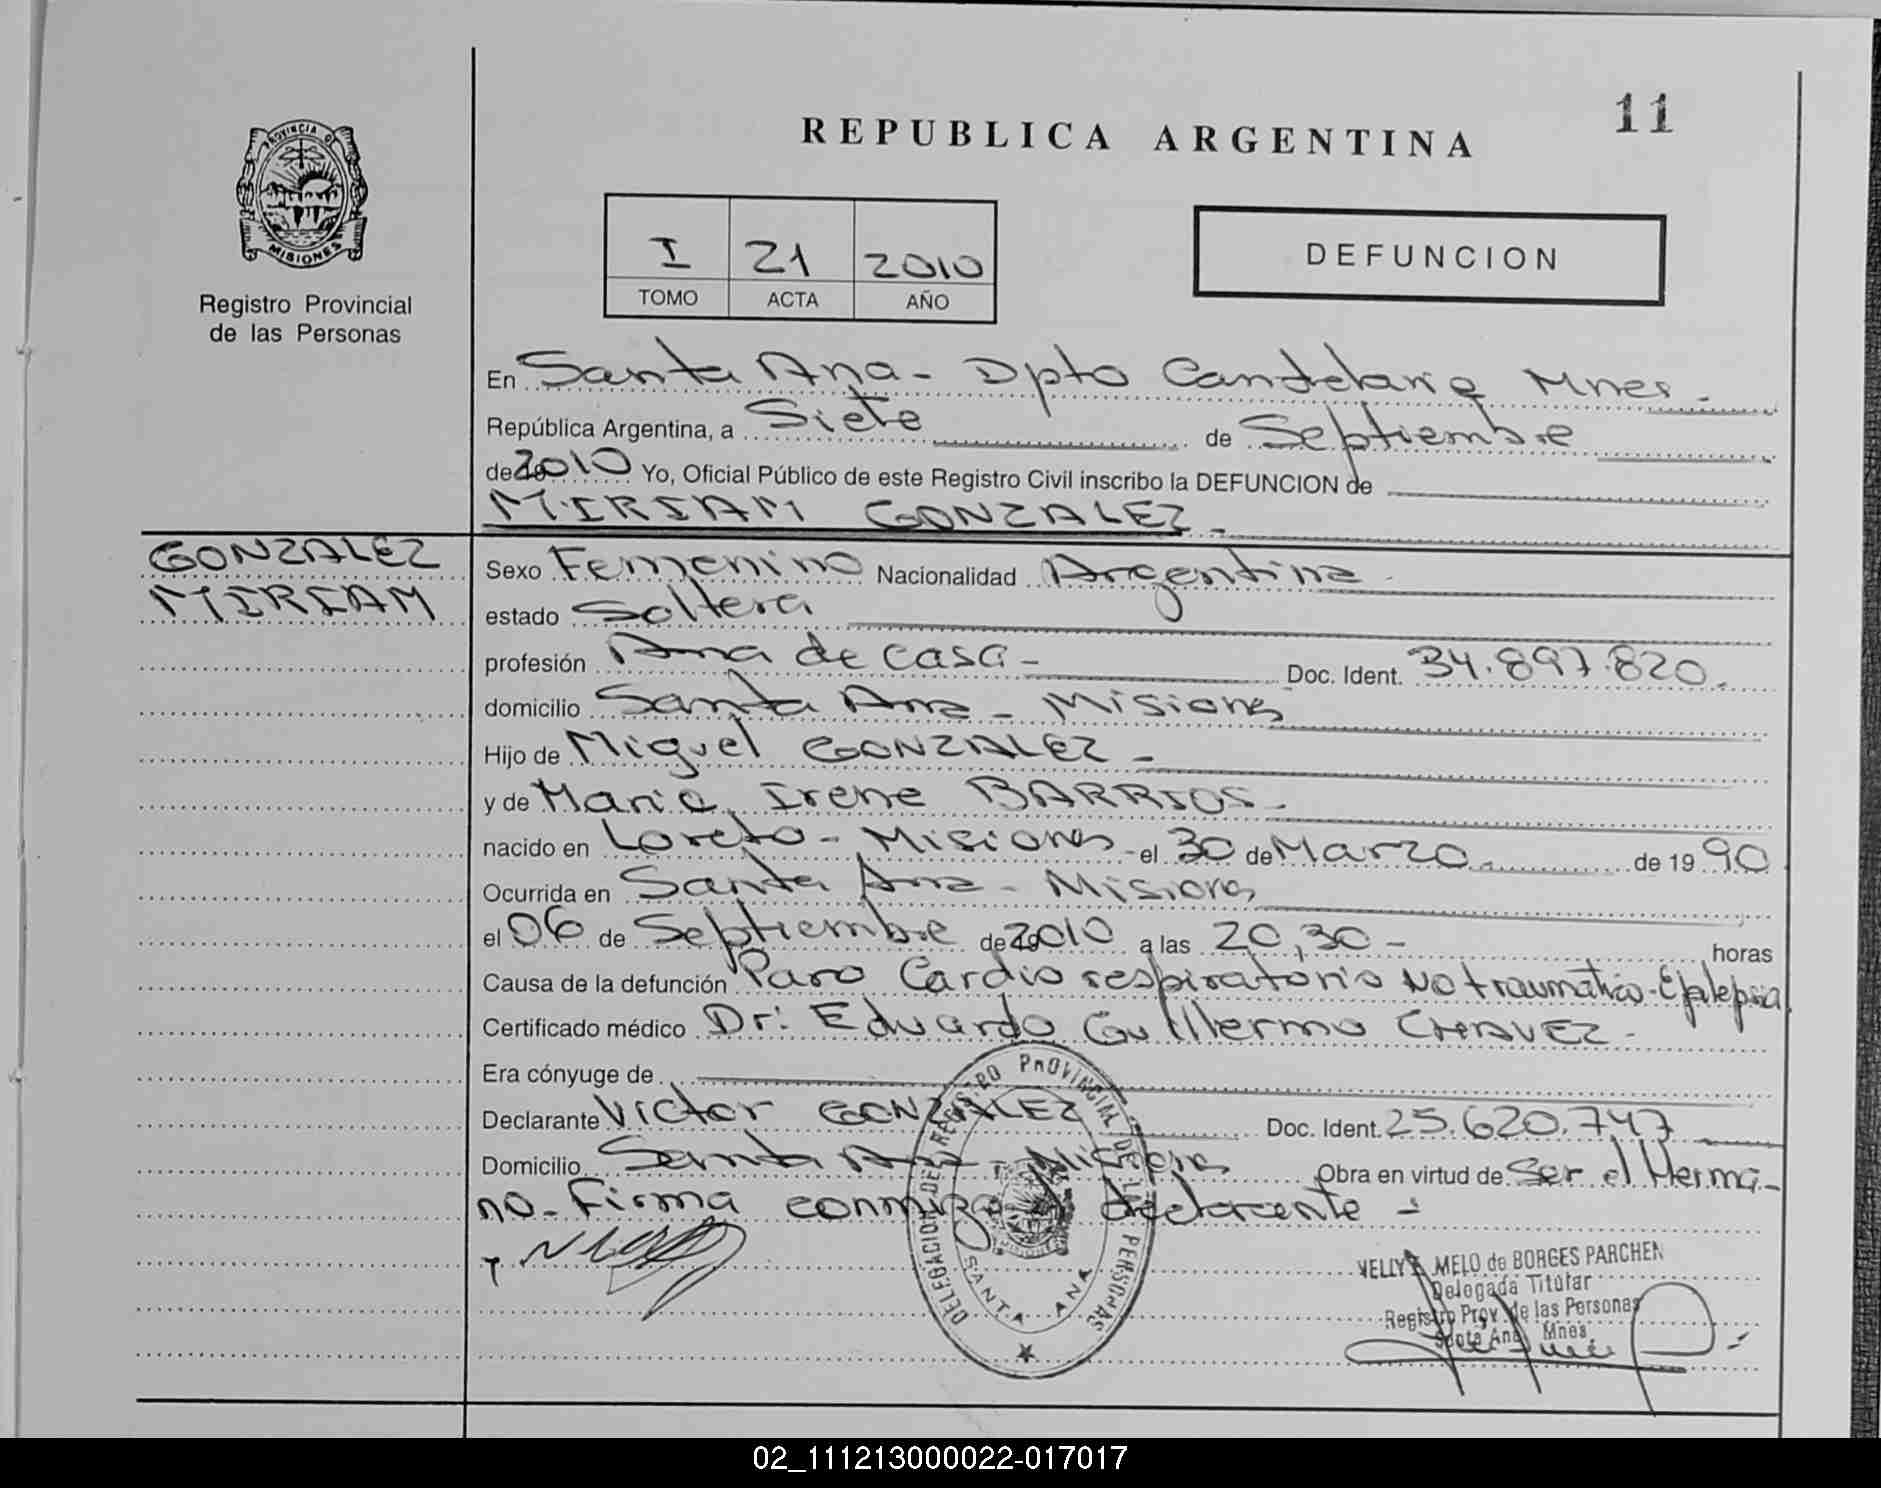 11
REPUBLICA ARGENTINA
PROVINCIA DE
MISIONES
Registro Provincial
de las Personas
I 21 2010
TOMO ACTA AÑO
DEFUNCION
En Santa Ana - Dpto Candelaria Mnes.
República Argentina, a Siete de Septiembre
de 2010 Yo, Oficial Público de este Registro Civil inscribo la DEFUNCION de
MIRIAM GONZALEZ.
GONZALEZ
MIRIAM
Sexo Femenino Nacionalidad Argentina
estado Soltera
profesión Ama de casa - Doc. Ident. 34.897.820.
domicilio Santa Ana - Misiones
Hijo de Miguel GONZALEZ -
y de Maria Irene BARRIOS.
nacido en Loreto - Misiones - el 30 de Marzo. de 1990
Ocurrida en Santa Ana - Misiones
el 06 de Septiembre de 2010 a las 20,30 - horas
Causa de la defunción Paro Cardio respiratorio No traumatico - Epilepsia
Certificado médico Dr: Eduardo Guillermo CHAVEZ -
Era cónyuge de
Declarante Victor GONZALEZ Doc. Ident. 25.620.747
Domicilio Santa Ana - Misiones Obra en virtud de Ser el Herma-
no - Firma conmigo el declarante -
DELEGACION DEL REGISTRO PROVINCIAL DE LAS PERSONAS
SANTA ANA
NELLY E. MELO de BORGES PARCHEN
Delegada Titular
Registro Prov. de las Personas
Santa Ana Mnes.
02_111213000022-017017